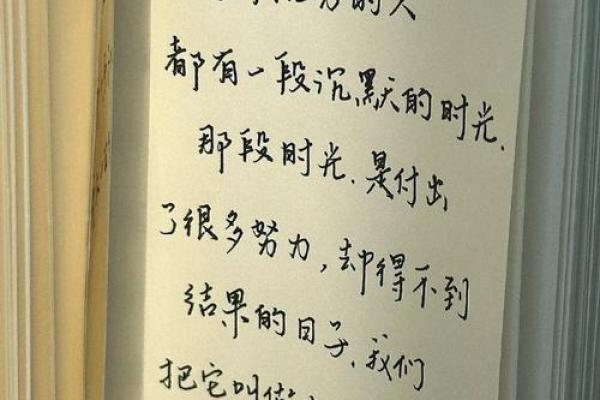 的人
都有一段沉默的时光.
那段时光.是付出
了很多努力,却得不到
结果的日子.我们
把它叫做